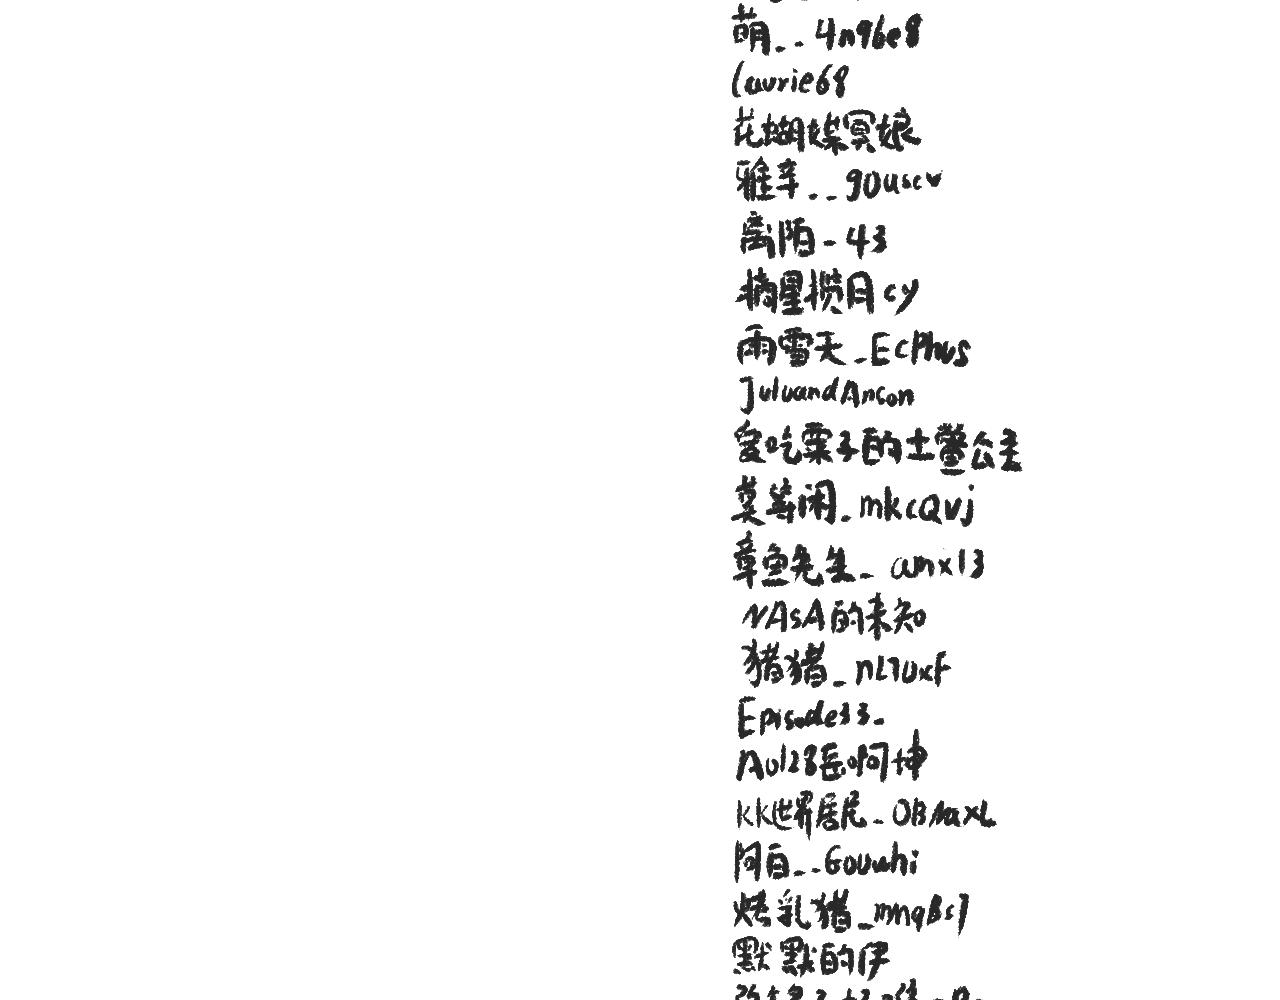 萌__4n96e8
laurie68
花蝴蝶冥娘
雅辛__90uscv
离陌_43
摘星揽月cy
雨雪天_EcPhus
JuluandAnson
爱吃栗子的土鳖公主
莫等闲_mkcQvj
章鱼先生_amx13
NASA的未知
猪猪_nL7uxF
Episode33_
Au128岳啊坤
kk世界居民_OBMaxL
阿白__Gouwhi
烤乳猪_mmqBs7
默默的伊